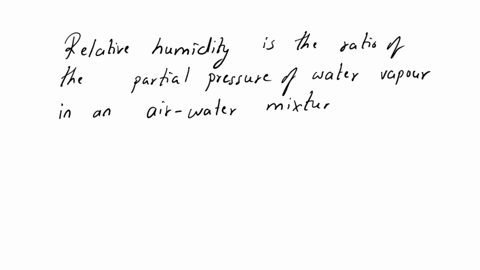 Relative humidity is the ratio of
the partial pressure of water vapour
in an air-water mixtur